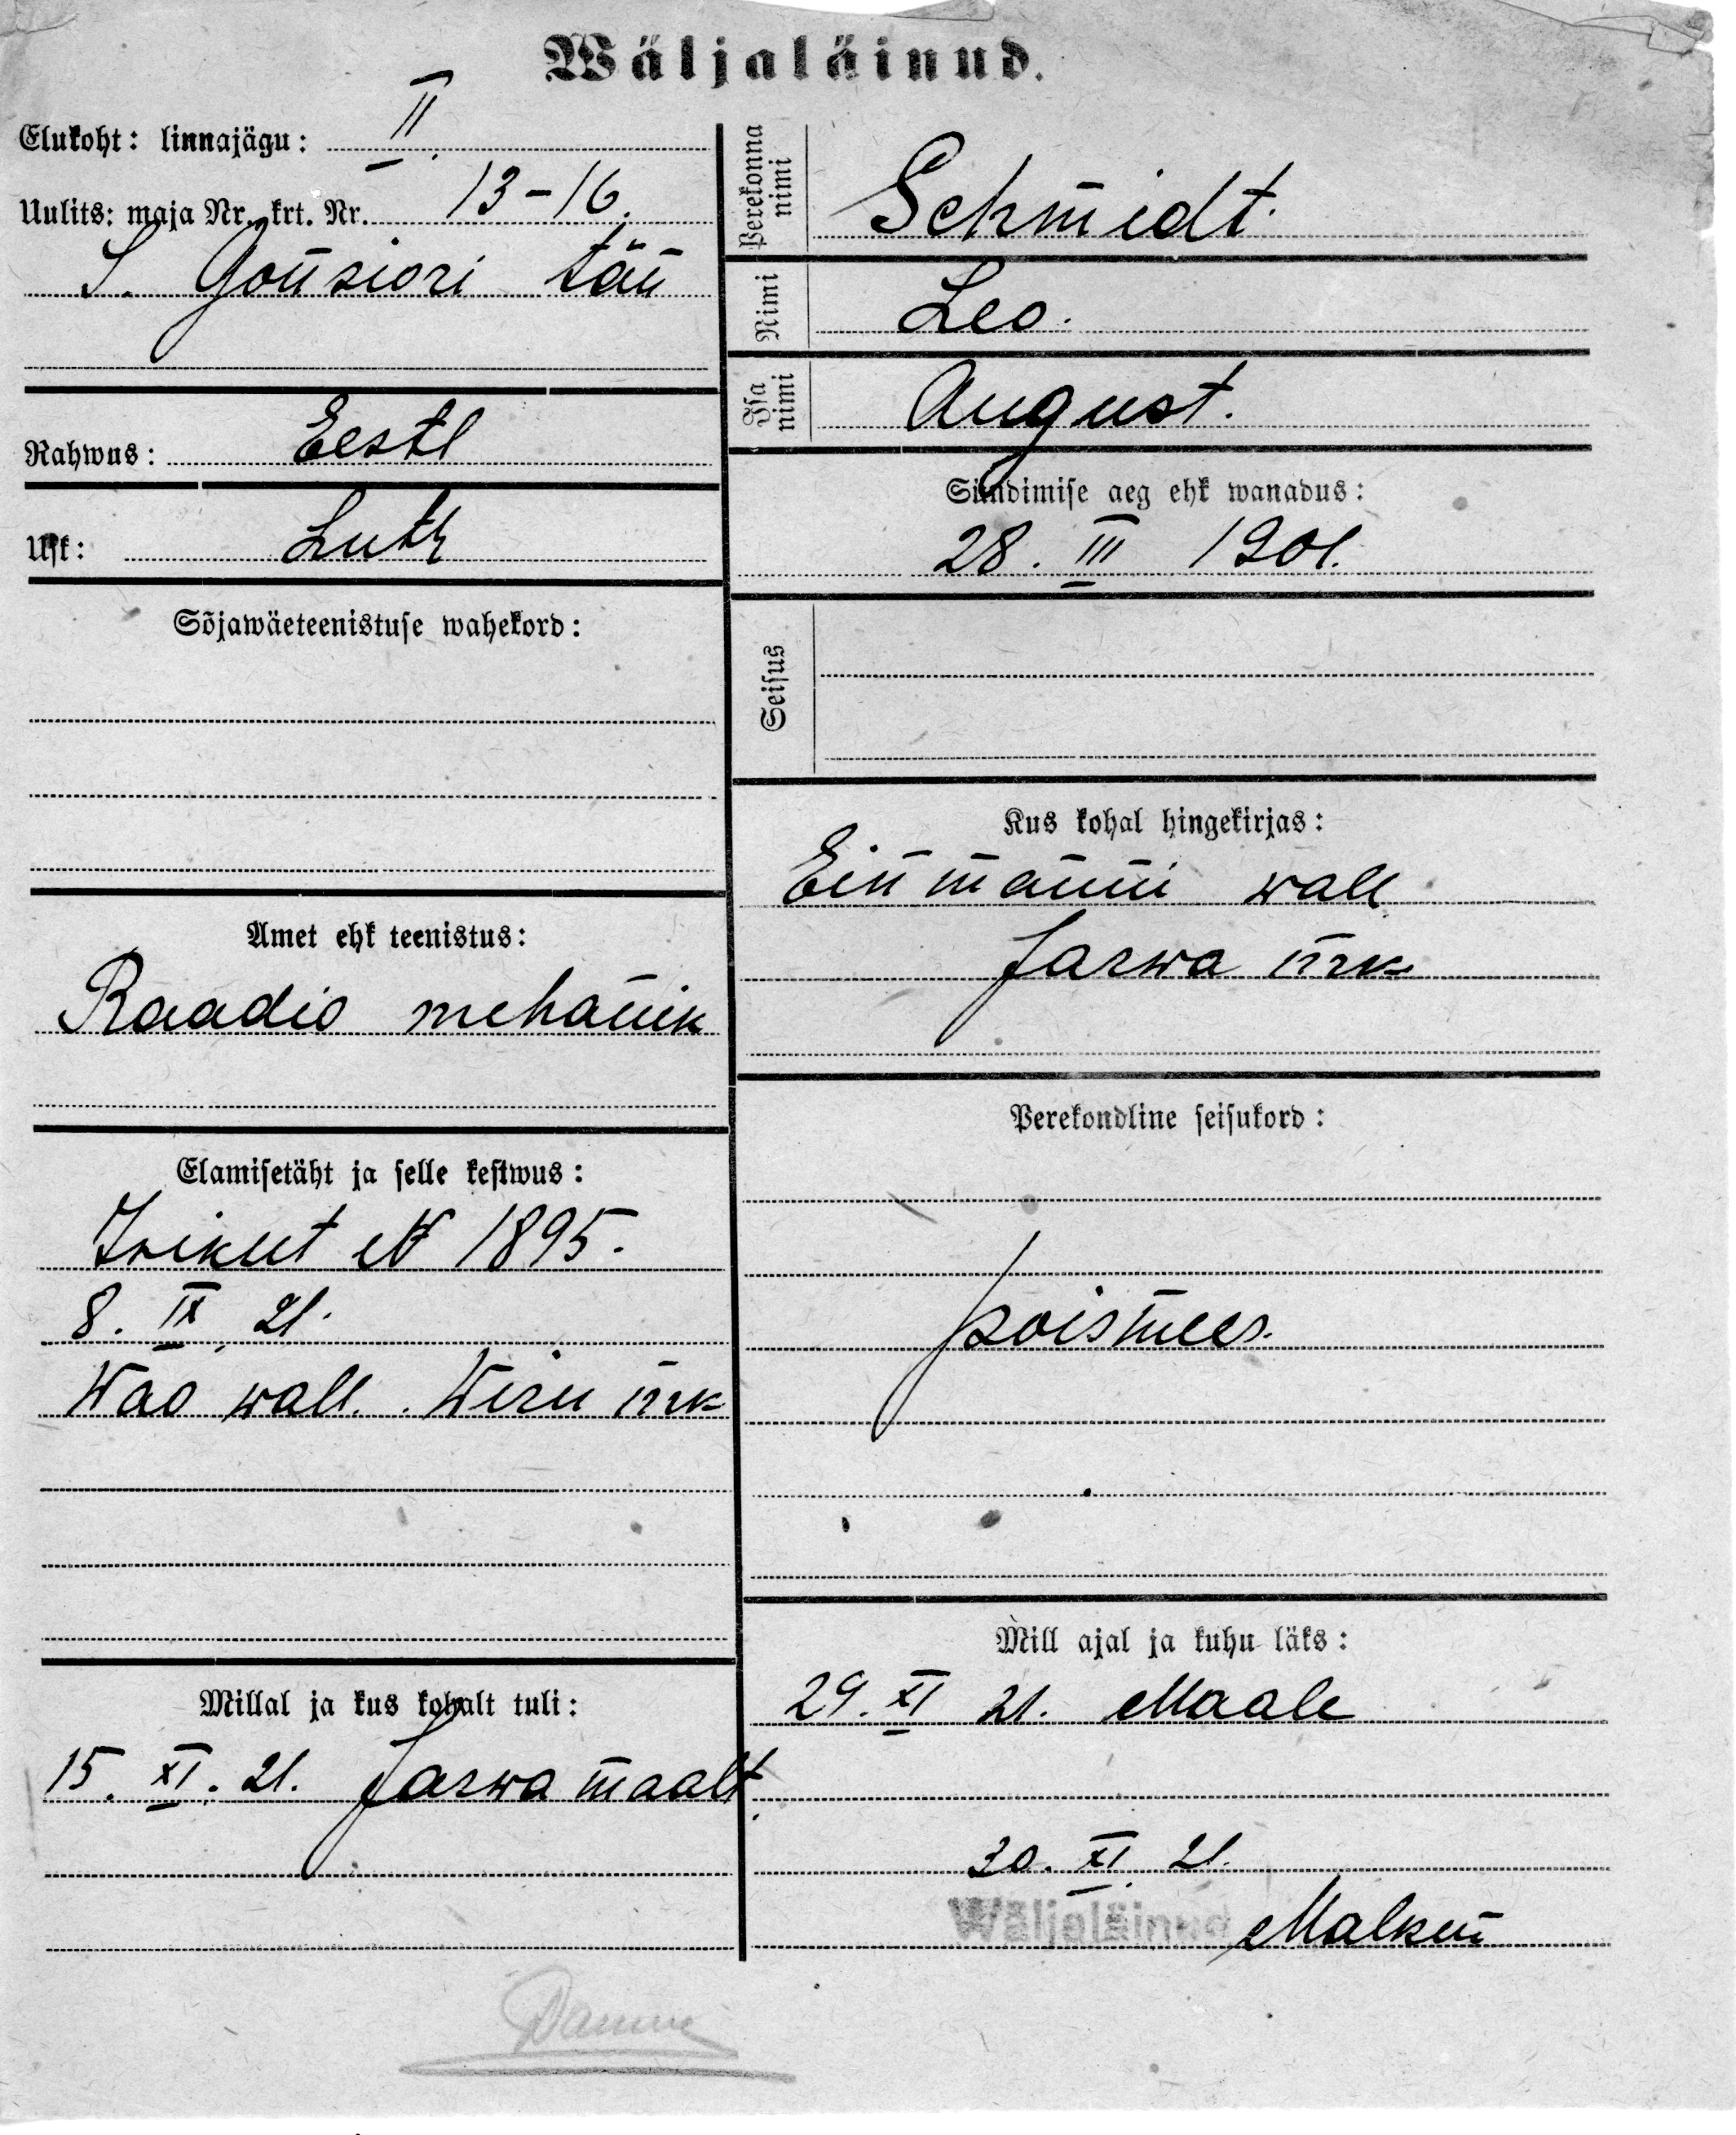 Wäljaläinud.
Elukoht: linnajägu: II
Uulits: maja Nr. krt. Nr. 13-16.
S. Gonsiori tän
Rahwus: Eesti
Usk: Luth
Sõjawäeteenistuse wahekord:
Amet ehk teenistus:
Raadio mehanik
Elamisetäht ja selle kestwus:
Isikut N 1895.
8. IX 21.
Wao wall. Wiru mrk
Millal ja kus kohalt tuli:
15. XI. 21. Jarwa maalt.
Perekonna nimi Schmidt.
Nimi Leo.
Isa nimi August.
Sündimise aeg ehk wanadus:
28. III 1901.
Seisus
Kus kohal hingekirjas:
Einmanni wall
Jarwa mrk
Perekondline seisukord:
poismees.
Mill ajal ja kuhu läks:
29. XI 21. Maale
30. XI. 21.
Wäljaläinud